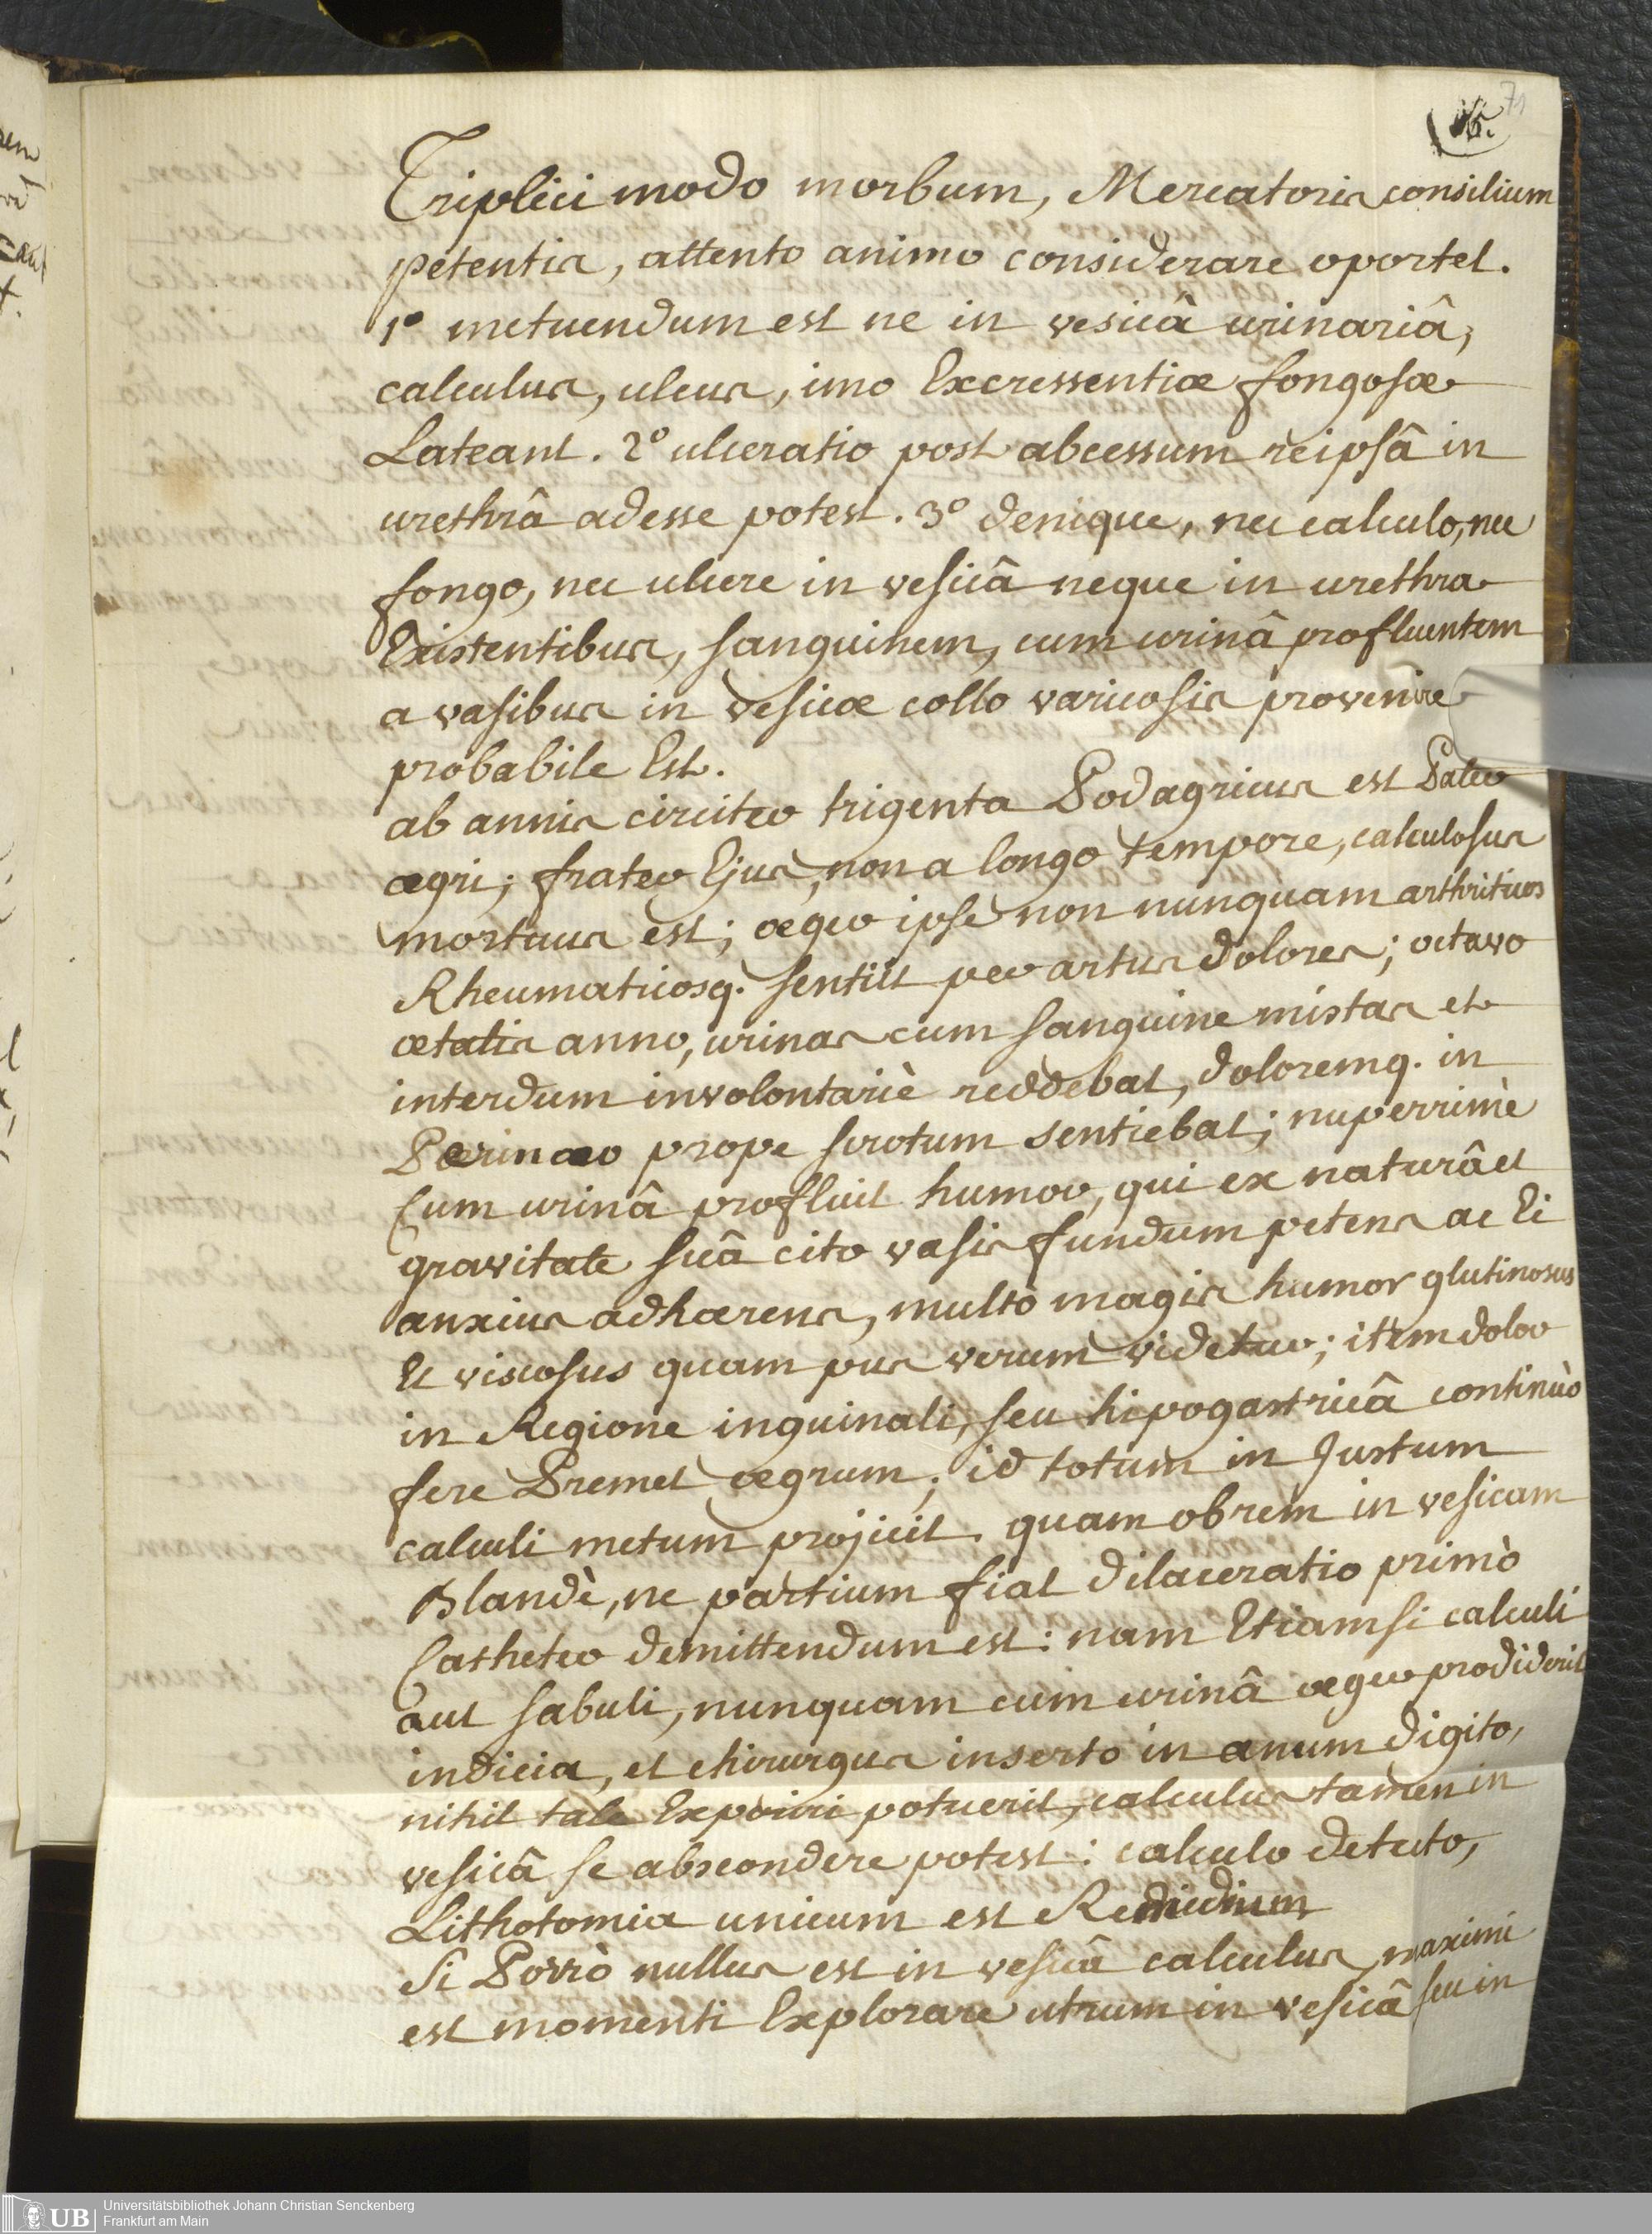 71
Triplici modo morbum, Mercatoris consilium
petentis, attento animo considerare oportet.
1º metuendum est ne in vesicâ urinariâ,
calculus, ulcus, imo Excressentiæ fongosæ
Lateant. 2º ulceratio post abcessum reipsâ in
urethrâ adesse potest. 3º denique, nec calculo, nec
fongo, nec ulcere in vesicâ neque in urethra
Existentibus, sanguinem, cum urinâ profluentem
a vasibus in vesicæ collo varicosis provenire
probabile Est.
ab annis circiter trigenta Podagricus est Pater
ægri; frater Ejus, non a longo tempore, calculosus
mortuus est; æger ipse non nunquam arthriticos
Rheumaticosq. sentiit per artus dolores; octavo
ætatis anno, urinas cum sanguine mistas et
interdum involontariè reddebat, doloremq. in
Perinæo prope scrotum sentiebat; nuperrimè
Cum urinâ profluit humor, qui ex naturâ et
gravitate suâ cito vasis fundum petens ac Ei
anxius adhærens, multò magis humor glutinosus
Et viscosus quam pus verum videtur; item dolor
in Regione inguinali, seu hipogastricâ continùo
fere Premet ægrum; id totum in Justum
calculi metum projicit. quam obrem in vesicam
Blandè, ne partium fiat dilaceratio primò
Catheter demittendum est: nam Etiamsi calculi
aut sabuli, nunquam cum urinâ æger prodiderit
indicia, et chirurgus inserto in anum digito,
nihil tale Experiri potuerit, calculus tamen in
vesicâ se abscondere potest: calculo detecto,
Lithotomia unicum est Remedium
Si Porrò nullus est in vesicâ calculus, maximi
est momenti Explorare utrum in vesicâ seu in
Universitätsbibliothek Johann Christian Senckenberg
UB Frankfurt am Main